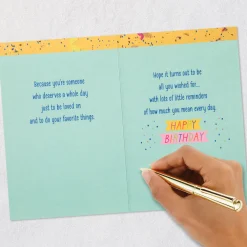 Because you're someone
who deserves a whole day
just to be loved on
and to do your favorite things.
Hope it turns out to be
all you wished for...
with lots of little reminders
of how much you mean every day.
HAPPY
BIRTHDAY